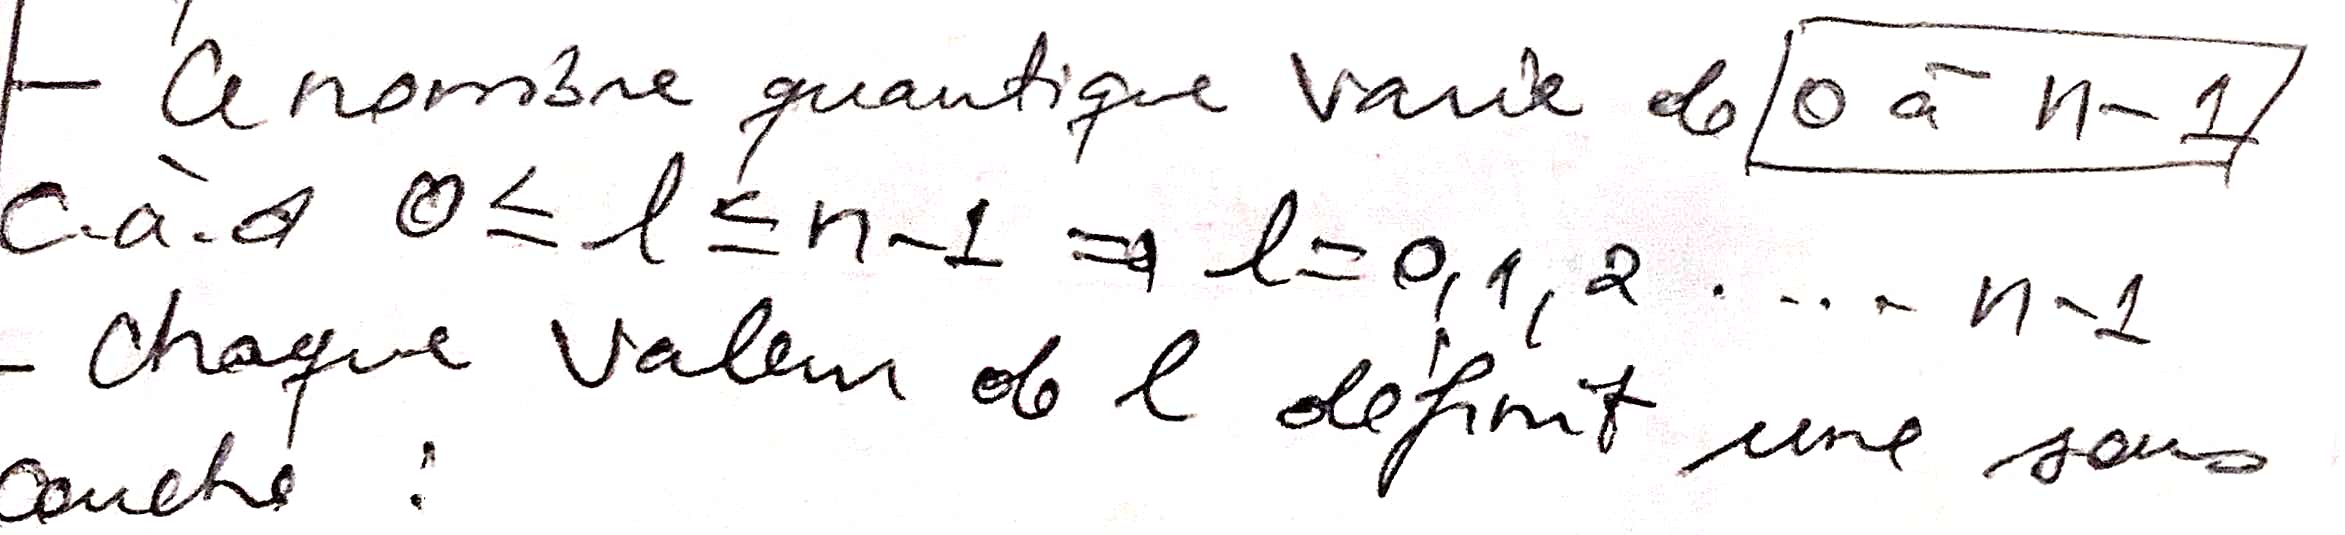 - Ce nombre quantique varie de 0 à n-1
c.à.d 0 ≤ l ≤ n-1 ⇒ l = 0, 1, 2 .... n-1
- chaque valeur de l définit une sous
couche :